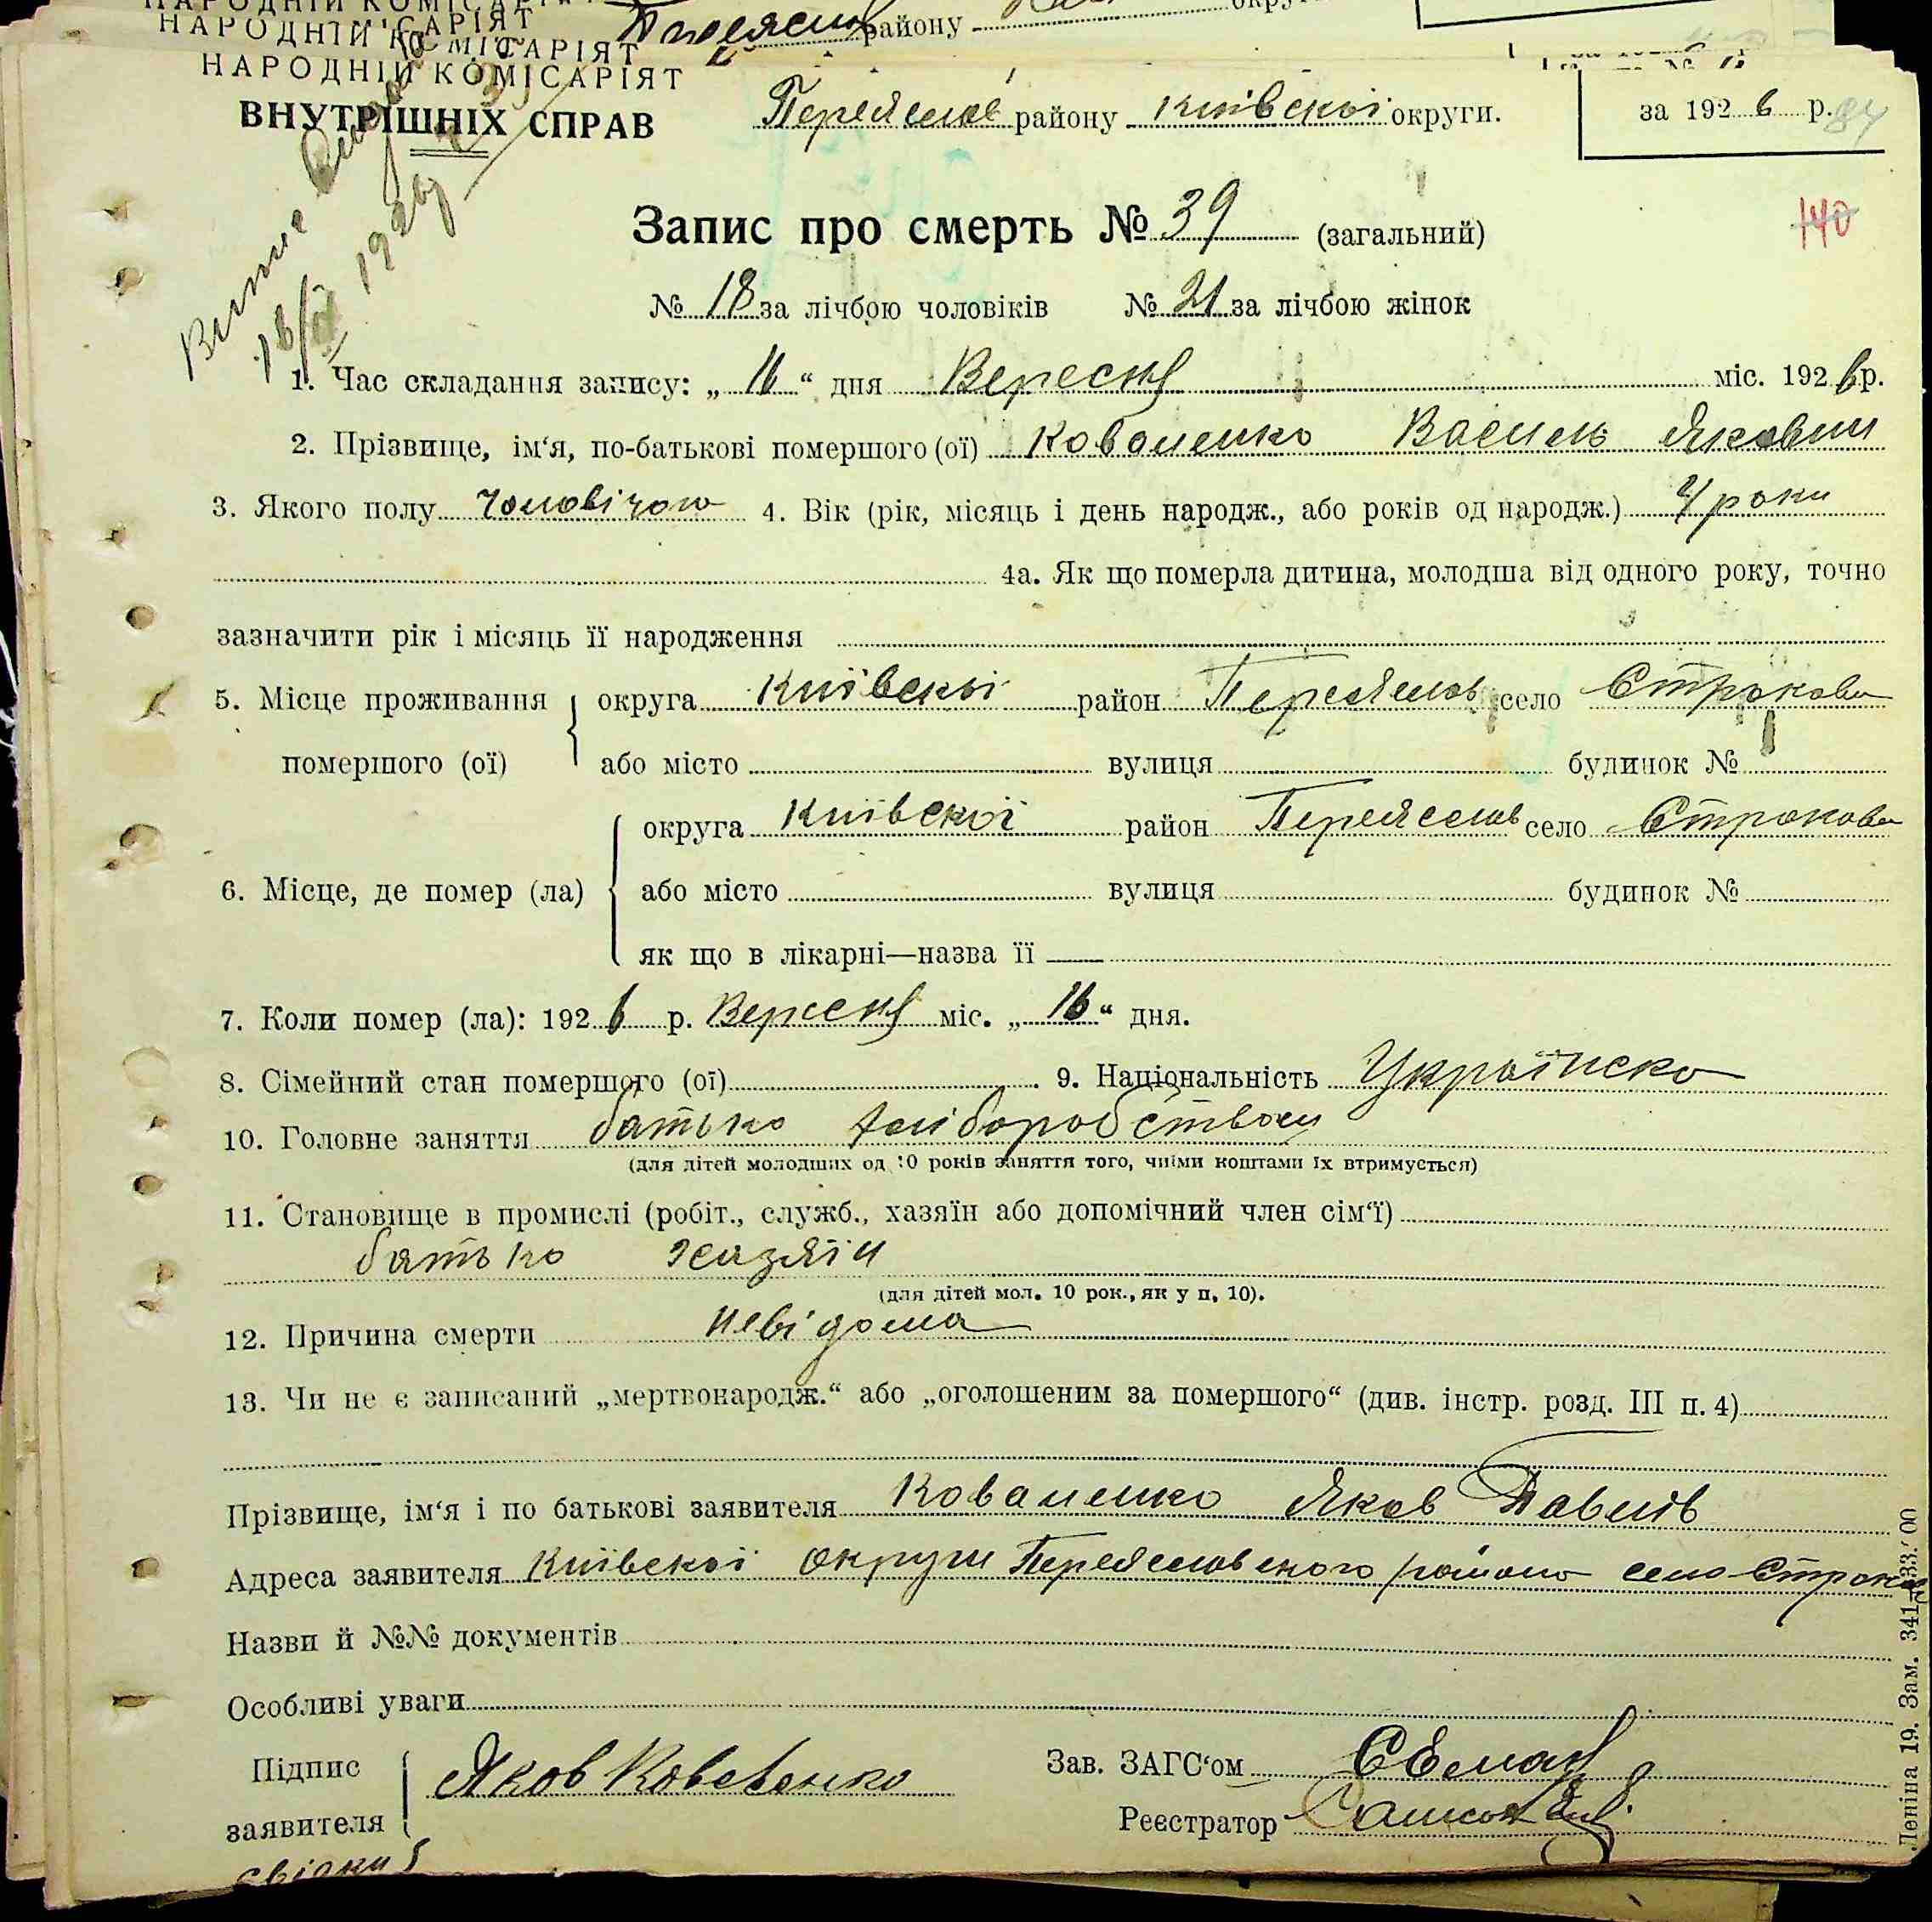 НАРОДНІЙ КОМІСАРІЯТ
НАРОДНІЙ КОМІСАРІЯТ району
НАРОДНІЙ КОМІСАРІЯТ
ВНУТРІШНІХ СПРАВ
Переяслов району Київскої округи.
за 1926 р. 84
Запис про смерть № 39 (загальний)
140
№ 18 за лічбою чоловіків № 21 за лічбою жінок
1926
1. Час складання запису: „16“ дня Вересня міс. 1926 р.
2. Прізвище, ім‘я, по-батькові помершого (ої) Коваленко Василь Якович
3. Якого полу Чоловічого 4. Вік (рік, місяць і день народж., або років од народж.) 4 роки
4а. Як що померла дитина, молодша від одного року, точно
зазначити рік і місяць її народження
5. Місце проживання помершого (ої) округа Київскої район Переяслов село Строкова
або місто вулиця будинок №
6. Місце, де помер (ла) округа Київскої район Переяслов село Строкова
або місто вулиця будинок №
як що в лікарні—назва її —
7. Коли помер (ла): 1926 р. Вересня міс. „16“ дня.
8. Сімейний стан помершого (ої) 9. Національність Українско
10. Головне заняття батько хліборобством
(для дітей молодших од 10 років заняття того, чиїми коштами їх втримується)
11. Становище в промислі (робіт., служб., хазяїн або допомічний член сім‘ї)
батько хазяїн
(для дітей мол. 10 рок., як у п. 10).
12. Причина смерти невідома
13. Чи не є записаний „мертвонародж.“ або „оголошеним за помершого“ (див. інстр. розд. III п. 4)
Прізвище, ім‘я і по батькові заявителя Коваленко Яков Павлів
Адреса заявителя Київскої округи Переясловского району село Строкова
Назви й №№ документів
Особливі уваги
Підпис заявителя Яков Коваленко
Зав. ЗАГС‘ом
Реєстратор
свідки
Леніна 19. Зам. 341